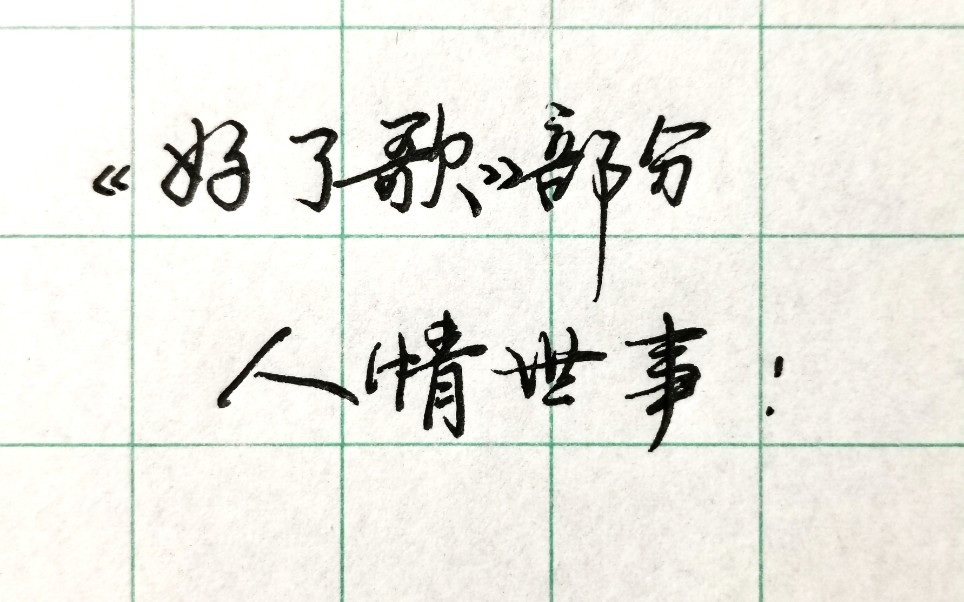 《好了歌》部分
人情世事！